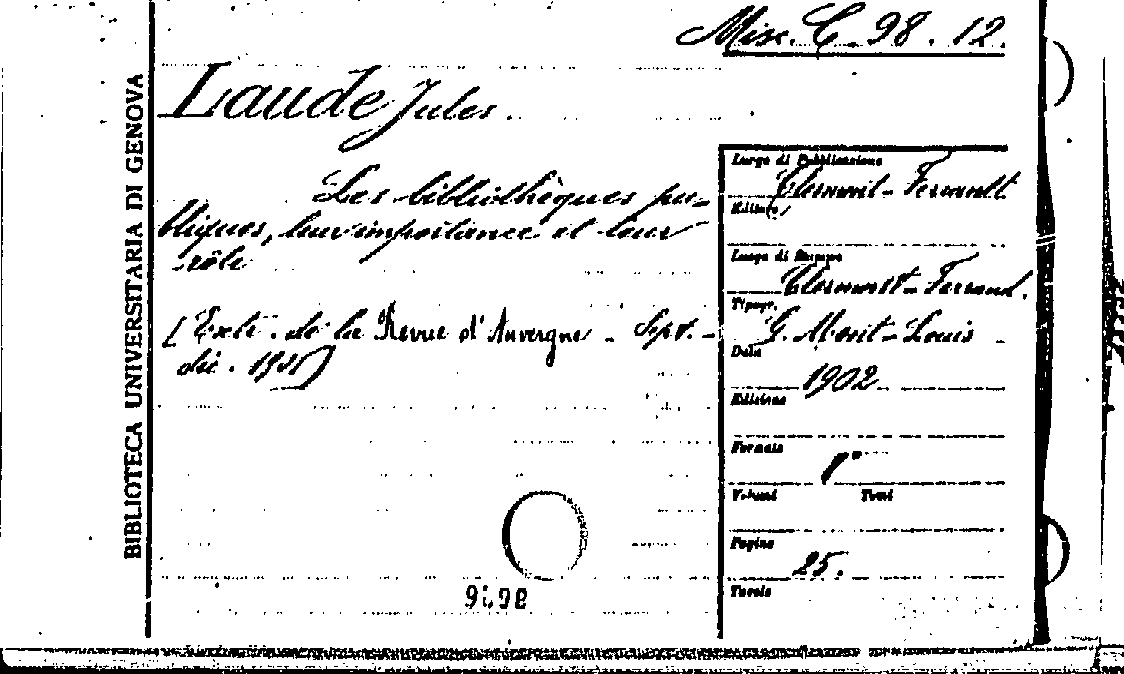 Misc. C. 98. 12.
BIBLIOTECA UNIVERSITARIA DI GENOVA
Laude Jules.
Les bibliothèques pu-
bliques, leur importance et leur
rôle
[Extr. de la Revue d'Auvergne - Sept. -
déc. 1901]
Luogo di Pubblicazione
Clermont-Ferrand
Editore
Luogo di Stampa
Clermont-Ferrand.
Tipogr.
G. Mont-Louis
Data
1902
Edizione
Formato
8°
Volumi Tomi
Pagine
25.
Tavole